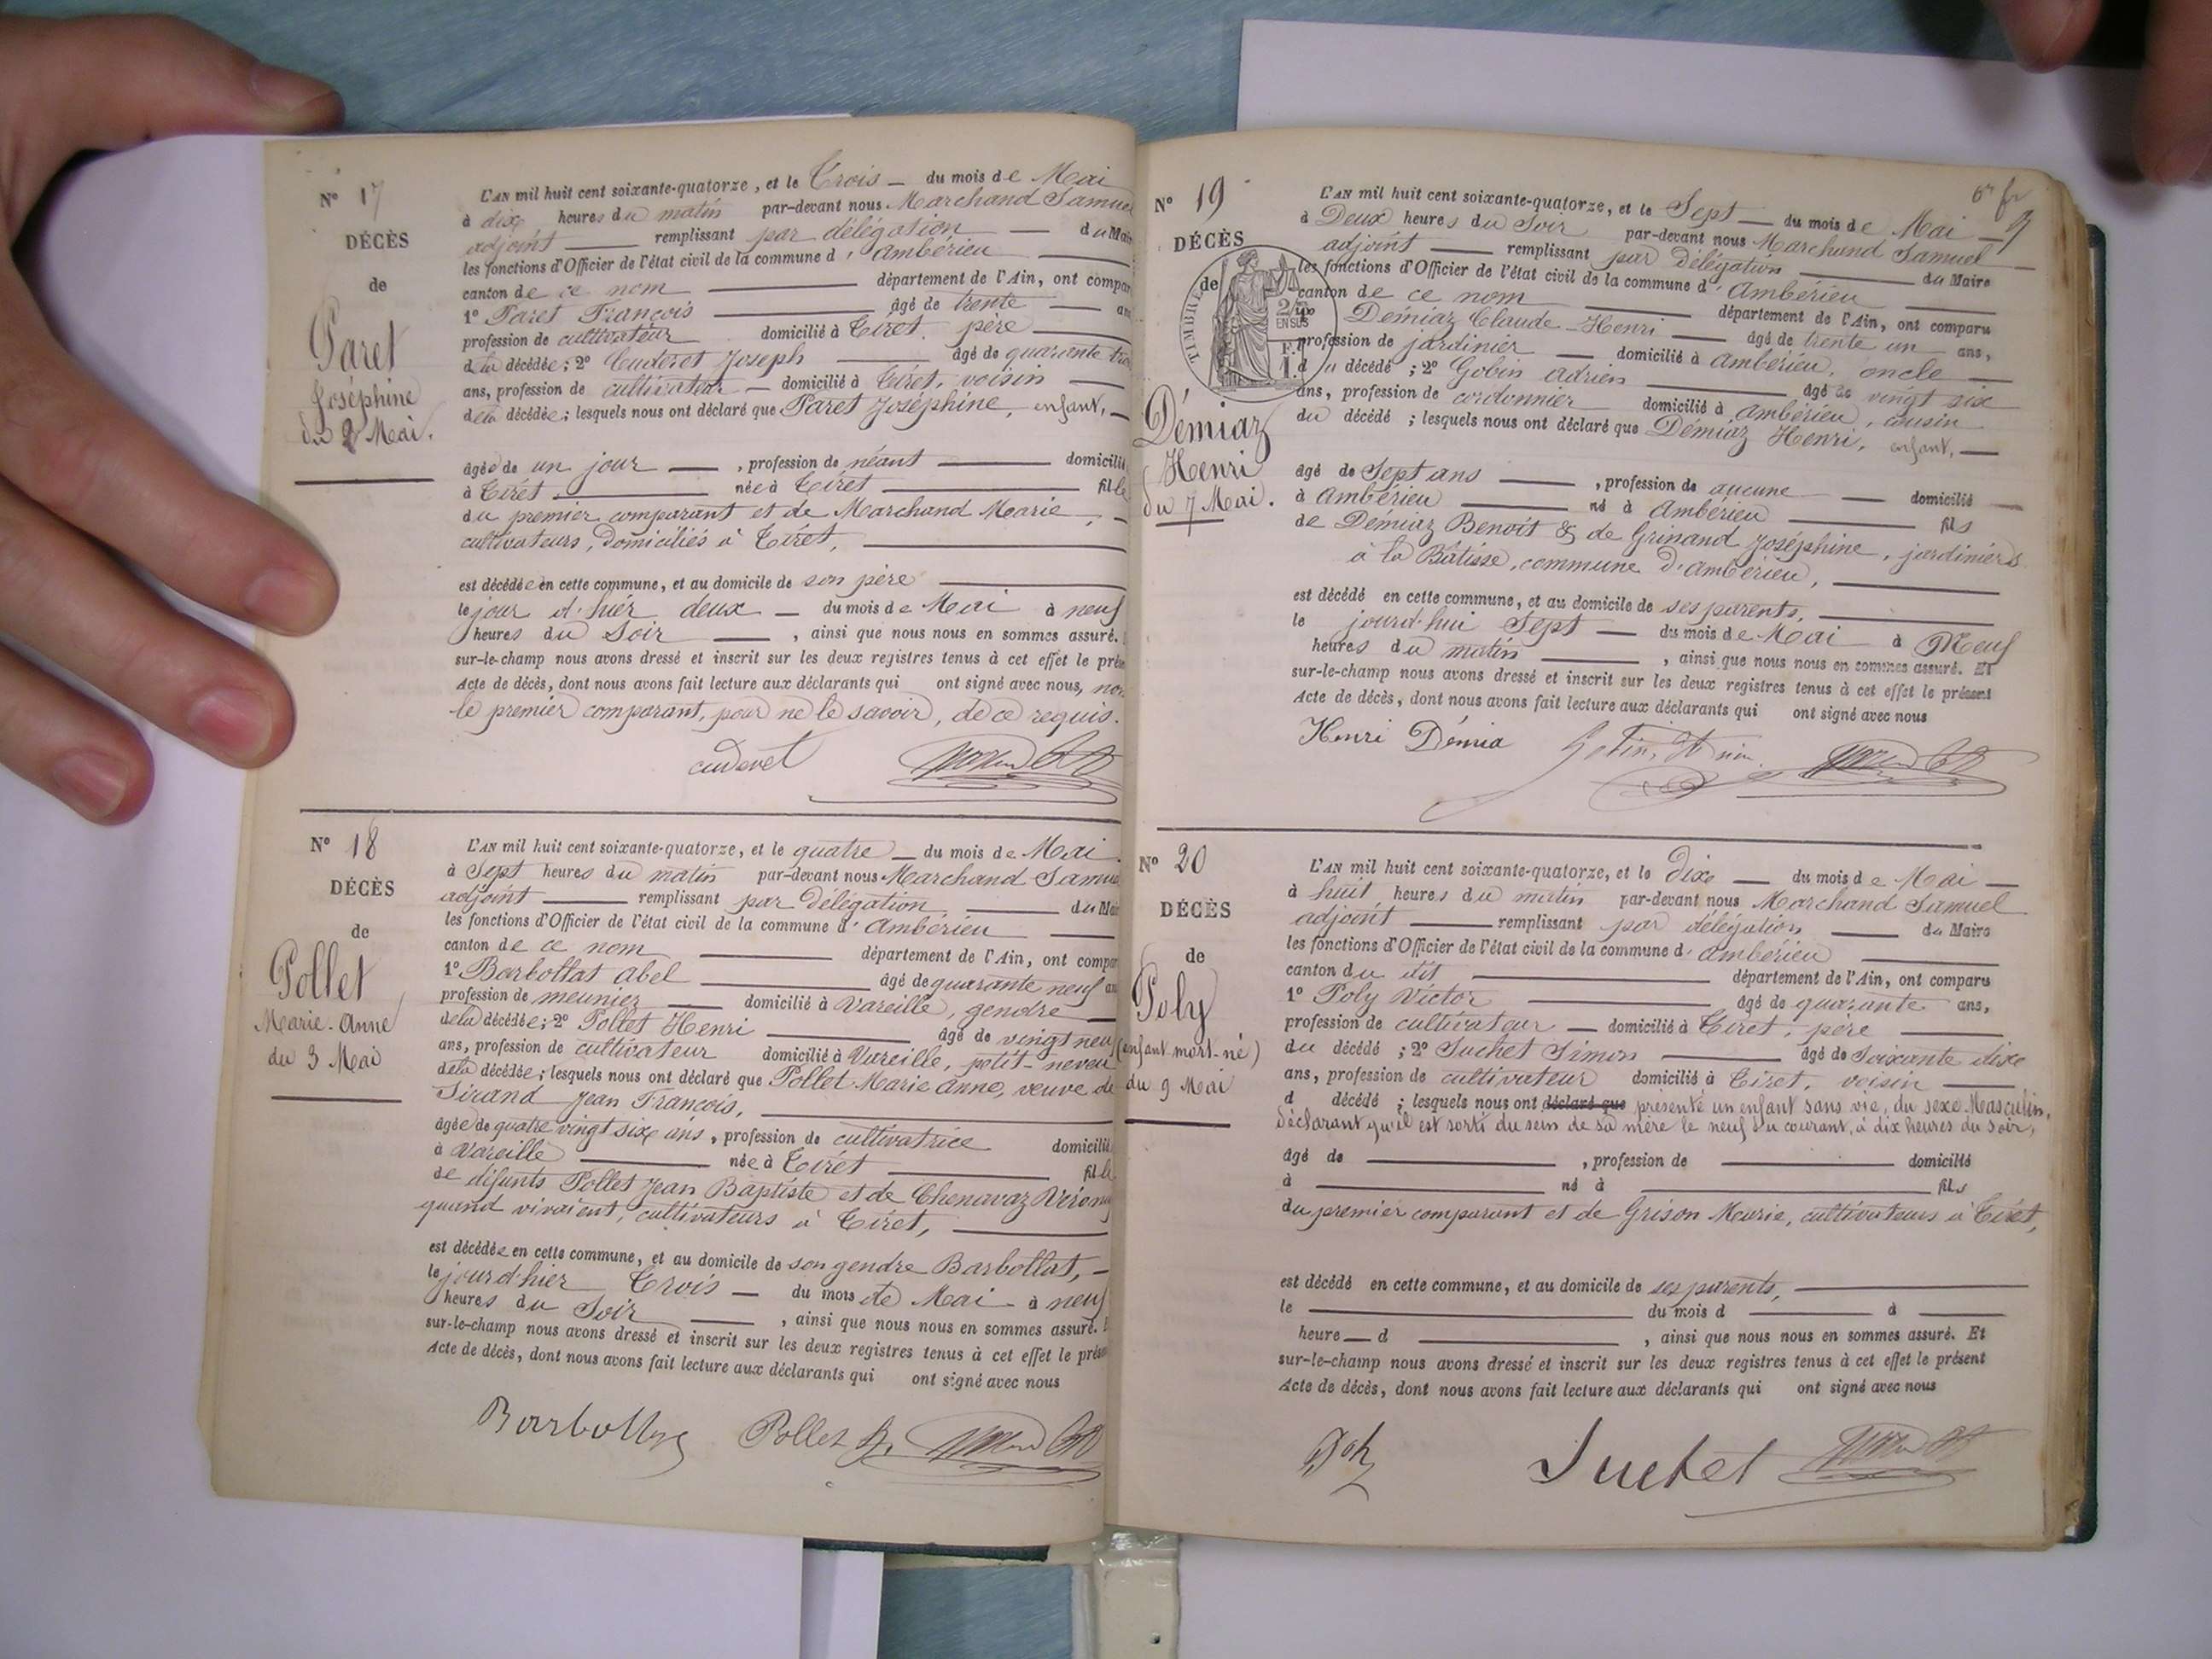 N° 17
DÉCÈS
de
Paret
Joséphine
du 2 Mai.
L'AN mil huit cent soixante-quatorze, et le Trois — du mois de Mai
à dix heures du matin par-devant nous Marchand Samuel
adjoint — remplissant par délégation — du Mair
les fonctions d'Officier de l'état civil de la commune d'Ambérieu —
canton de ce nom — département de l'Ain, ont compar
1° Paret François — âgé de trente — an
profession de cultivateur domicilié à Tiret, père —
de la décédée; 2° Cuderet Joseph — âgé de quarante trois
ans, profession de cultivateur — domicilié à Tiret, voisin —
de la décédée; lesquels nous ont déclaré que Paret Joséphine, enfant, —
âgée de un jour —, profession de néant — domicilié
à Tiret — née à Tiret — fille
du premier comparant et de Marchand Marie, —
cultivateurs, domiciliés à Tiret, —
est décédée en cette commune, et au domicile de son père —
le jour d'hier deux — du mois de Mai à neuf
heures du Soir —, ainsi que nous nous en sommes assuré.
sur-le-champ nous avons dressé et inscrit sur les deux registres tenus à cet effet le prés
Acte de décès, dont nous avons fait lecture aux déclarants qui ont signé avec nous, non
le premier comparant, pour ne le savoir, de ce requis.
cuderet
N° 18
DÉCÈS
de
Pollet
Marie-Anne
du 3 Mai
L'AN mil huit cent soixante-quatorze, et le quatre — du mois de Mai
à Sept heures du matin par-devant nous Marchand Samuel
adjoint — remplissant par délégation — du Mair
les fonctions d'Officier de l'état civil de la commune d'Ambérieu —
canton de ce nom — département de l'Ain, ont compar
1° Barbollat Abel — âgé de quarante neuf an
profession de meunier — domicilié à Vareille, gendre —
de la décédée; 2° Pollet Henri — âgé de vingt neuf
ans, profession de cultivateur domicilié à Vareille, petit-neveu
de la décédée; lesquels nous ont déclaré que Pollet Marie Anne, veuve de
Sirand Jean François, —
âgée de quatre vingt six ans, profession de cultivatrice domicilié
à Vareille — née à Tiret — fille
de défunts Pollet Jean Baptiste et de Chenavaz
quand vivaient, cultivateurs à Tiret, —
est décédée en cette commune, et au domicile de son gendre Barbollat, —
le jour d'hier Trois — du mois de Mai à neuf
heures du Soir —, ainsi que nous nous en sommes assuré.
sur-le-champ nous avons dressé et inscrit sur les deux registres tenus à cet effet le prése
Acte de décès, dont nous avons fait lecture aux déclarants qui ont signé avec nous
Pollet h.
N° 19
DÉCÈS
de
TIMBRE
EN SUS
Démiaz
Henri
du 7 Mai.
L'AN mil huit cent soixante-quatorze, et le Sept — du mois de Mai —
à Deux heures du Soir par-devant nous Marchand Samuel
adjoint — remplissant par délégation — du Maire
les fonctions d'Officier de l'état civil de la commune d'Ambérieu
canton de ce nom — département de l'Ain, ont comparu
Démiaz Claude-Henri — âgé de trente un ans,
profession de jardinier — domicilié à Ambérieu, oncle —
du décédé; 2° Gobin Adrien — âgé de vingt six
ans, profession de cordonnier domicilié à Ambérieu, cousin
du décédé; lesquels nous ont déclaré que Démiaz Henri, enfant, —
âgé de Sept ans —, profession de aucune — domicilié —
à Ambérieu — né à Ambérieu — fils
de Démiaz Benoit & de Grinand Joséphine, jardiniers
à la Bâtisse, commune d'Ambérieu, —
est décédé en cette commune, et au domicile de ses parents, —
le jourd'hui Sept — du mois de Mai à Neuf
heures du matin —, ainsi que nous nous en sommes assuré. Et
sur-le-champ nous avons dressé et inscrit sur les deux registres tenus à cet effet le présent
Acte de décès, dont nous avons fait lecture aux déclarants qui ont signé avec nous
Henri Démia
N° 20
DÉCÈS
de
Poly
(enfant mort-né)
du 9 Mai
L'AN mil huit cent soixante-quatorze, et le Dix — du mois de Mai —
à huit heures du matin par-devant nous Marchand Samuel
adjoint — remplissant par délégation — du Maire
les fonctions d'Officier de l'état civil de la commune d'Ambérieu —
canton du dit — département de l'Ain, ont comparu
1° Poly Victor — âgé de quarante ans,
profession de cultivateur — domicilié à Tiret, père —
du décédé; 2° Suchet Simon — âgé de Soixante dix
ans, profession de cultivateur domicilié à Tiret, voisin —
d décédé; lesquels nous ont déclaré que présenté un enfant sans vie, du sexe Masculin,
déclarant qu'il est sorti du sein de sa mère le neuf du courant, à dix heures du soir,
âgé de —, profession de — domicilié
à — né à — fils
du premier comparant et de Grison Marie, cultivateurs à Tiret,
est décédé en cette commune, et au domicile de ses parents, —
le — du mois d — à —
heure — d —, ainsi que nous nous en sommes assuré. Et
sur-le-champ nous avons dressé et inscrit sur les deux registres tenus à cet effet le présent
Acte de décès, dont nous avons fait lecture aux déclarants qui ont signé avec nous
Suchet